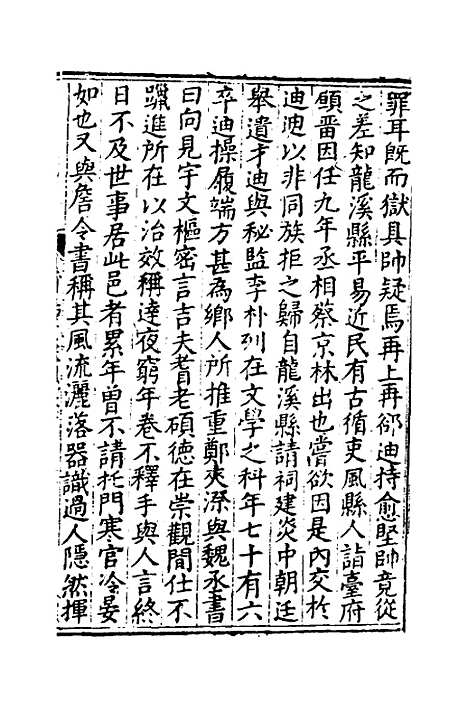 罪耳既而獄具帥疑焉再上再郤迪持愈堅帥竟從
之差知龍溪縣平易近民有古循吏風縣人詣臺府
願畱因任九年丞相蔡京林出也嘗欲因是內交於
迪迪以非同族拒之歸自龍溪縣請祠建炎中朝廷
舉遺才迪與秘監李朴列在文學之科年七十有六
卒迪操履端方甚為鄉人所推重鄭夾漈與魏丞書
曰向見宇文樞密言吉夫耆老碩德在崇觀間仕不
躐進所在以治效稱達夜窮年卷不釋手與人言終
日不及世事居此邑者累年曾不請托門寒官冷晏
如也又與詹令書稱其風流灑落器識過人隱然揮